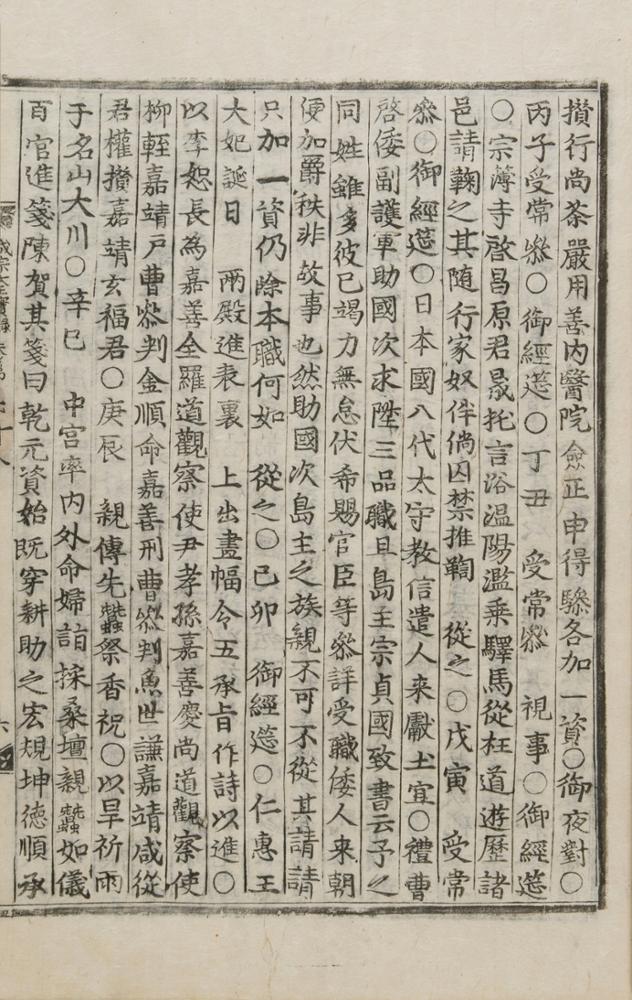 攅行尚茶嚴用善内醫院僉正申得騄各加一資○御夜對○
丙子受常叅○御經筵○丁丑　受常叅　視事○御經筵
○宗簿寺啓昌原君晟托言浴溫陽濫乗驛馬從枉道遊歷諸
邑請鞫之其隨行家奴伴倘囚禁推鞫　從之○戊寅　受常
叅○御經筵○日本國八代太守教信遣人来獻土宜○禮曹
啓倭副護軍助國次求陞三品職且島主宗貞國致書云予之
同姓雖多彼已竭力無怠伏希賜官臣等叅詳受職倭人来朝
便加爵秩非故事也然助國次島主之族親不可不從其請請
只加一資仍除本職何如　從之○己卯　御經筵○仁惠王
大妃誕日　兩殿進表裏　上出畫幅令五承旨作詩以進○
以李恕長為嘉善全羅道觀察使尹孝孫嘉善慶尚道觀察使
柳輊嘉靖戶曹叅判金順命嘉善刑曹叅判魚世謙嘉靖咸從
君權攅嘉靖玄福君○庚辰　親傳先蠶祭香祝○以旱祈雨
于名山大川○辛巳　中宮率内外命婦詣採桑壇親蠶如儀
百官進箋陳賀其箋曰乾元資始旣穿耕助之宏規坤德順承
成宗大王實錄
六